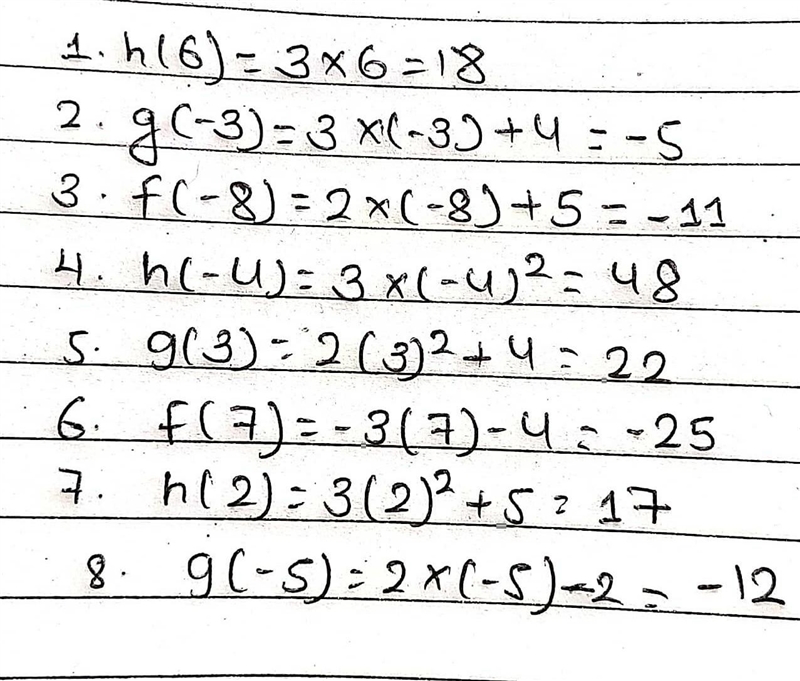 1. h(6) = 3×6 = 18
2. g(-3) = 3×(-3)+4 = -5
3. f(-8) = 2×(-8)+5 = -11
4. h(-4) = 3×(-4)² = 48
5. g(3) = 2(3)²+4 = 22
6. f(7) = -3(7)-4 = -25
7. h(2) = 3(2)²+5 = 17
8. g(-5) = 2×(-5)-2 = -12